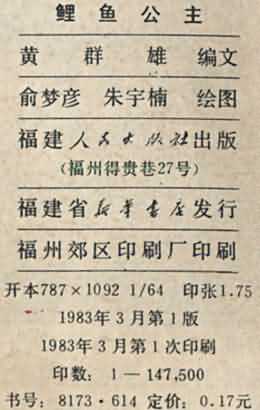 鲤鱼公主
黄群雄 编文
俞梦彦 朱宇楠 绘图
福建人民出版社出版
(福州得贵巷27号)
福建省新华书店发行
福州郊区印刷厂印刷
开本787×1092 1/64 印张1.75
1983年3月第1版
1983年3月第1次印刷
印数：1—147,500
书号：8173·614 定价：0.17元